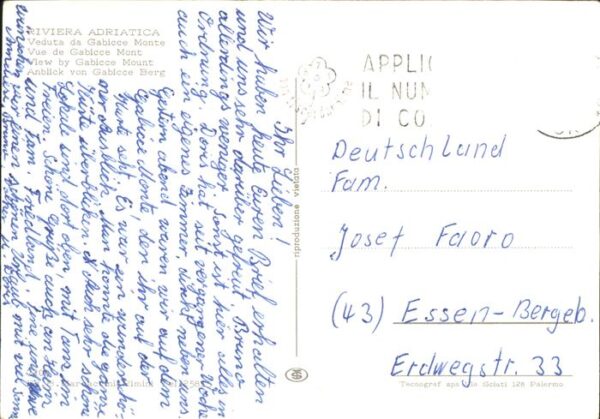 RIVIERA ADRIATICA
Veduta da Gabicce Monte
Vue de Gabicce Mont
View by Gabicce Mount
Anblick von Gabicce Berg
Ihr Lieben!
Wir haben heute Euren Brief erhalten
und uns sehr darüber gefreut. Bruno
allerdings weniger. Sonst ist hier alles in
Ordnung. Doris hat seit vergangene Woche
auch ein eigenes Zimmer, direkt neben uns.
Gestern abend waren wir auf dem
Gabicce Monte, den Ihr auf der
Karte seht. Es war ein wunderba-
rer Ausblick. Man konnte die ganze
Küste überblicken. Auch sehr schöne
Lokale sind dort oben, mit Tanz im
Freien. Schöne Grüße auch an
und Fam.
wünschen wir einen schönen Urlaub mit viel Sonne
APPLIC
IL NUM
DI CO
riproduzione vietata
Deutschland
Fam.
Josef Faoro
(43) Essen-Bergeb.
Erdwegstr. 33
Tecnograf Palermo